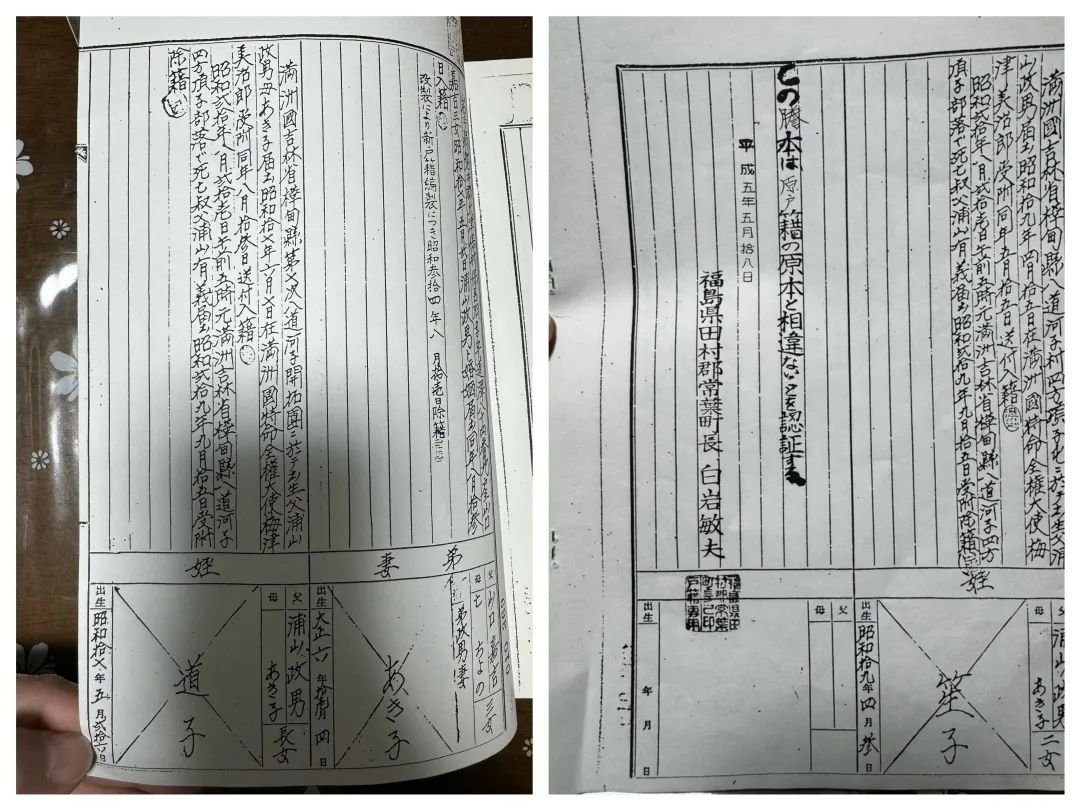 嘉吉三女昭和拾七年五月弐日浦山政男ト婚姻届出同年八月拾参
日入籍
改製により新戸籍編製につき昭和参拾四年八月拾壱日除籍
満洲國吉林省樺甸縣第七次八道河子開拓團ニ於テ出生父浦山
政男母あき子届出昭和拾七年六月七日在満洲國特命全權大使梅津
美治郎受附同年八月拾参日送付入籍
昭和弐拾年八月弐拾壱日午前五時元満洲吉林省樺甸縣八道河子
四方頂子部落デ死亡叔父浦山有義届出昭和弐拾九年九月拾五日受附
除籍
弟
妻
姪
父 山口嘉吉
母 ちよの
三女
弟政男妻
あき子
出生 大正六年拾月四日
父 浦山政男
母 あき子
長女
道子
出生 昭和拾七年五月弐拾六日
満洲國吉林省樺甸縣八道河子村四方頂子屯ニ於テ出生父浦
山政男届出昭和拾九年四月拾五日在満洲國特命全權大使梅
津美治郎受附同年五月拾五日送付入籍
昭和弐拾年八月弐拾壱日午前五時元満洲吉林省樺甸縣八道河子四方
頂子部落デ死亡叔父浦山有義届出昭和弐拾九年九月拾五日受附除籍
姪
この謄本は原戸籍の原本と相違ないことを認証する
平成五年五月拾八日
福島県田村郡常葉町長 白岩敏夫
父 浦山政男
母 あき子
二女
笙子
出生 昭和拾九年四月参日
父
母
出生 年 月 日